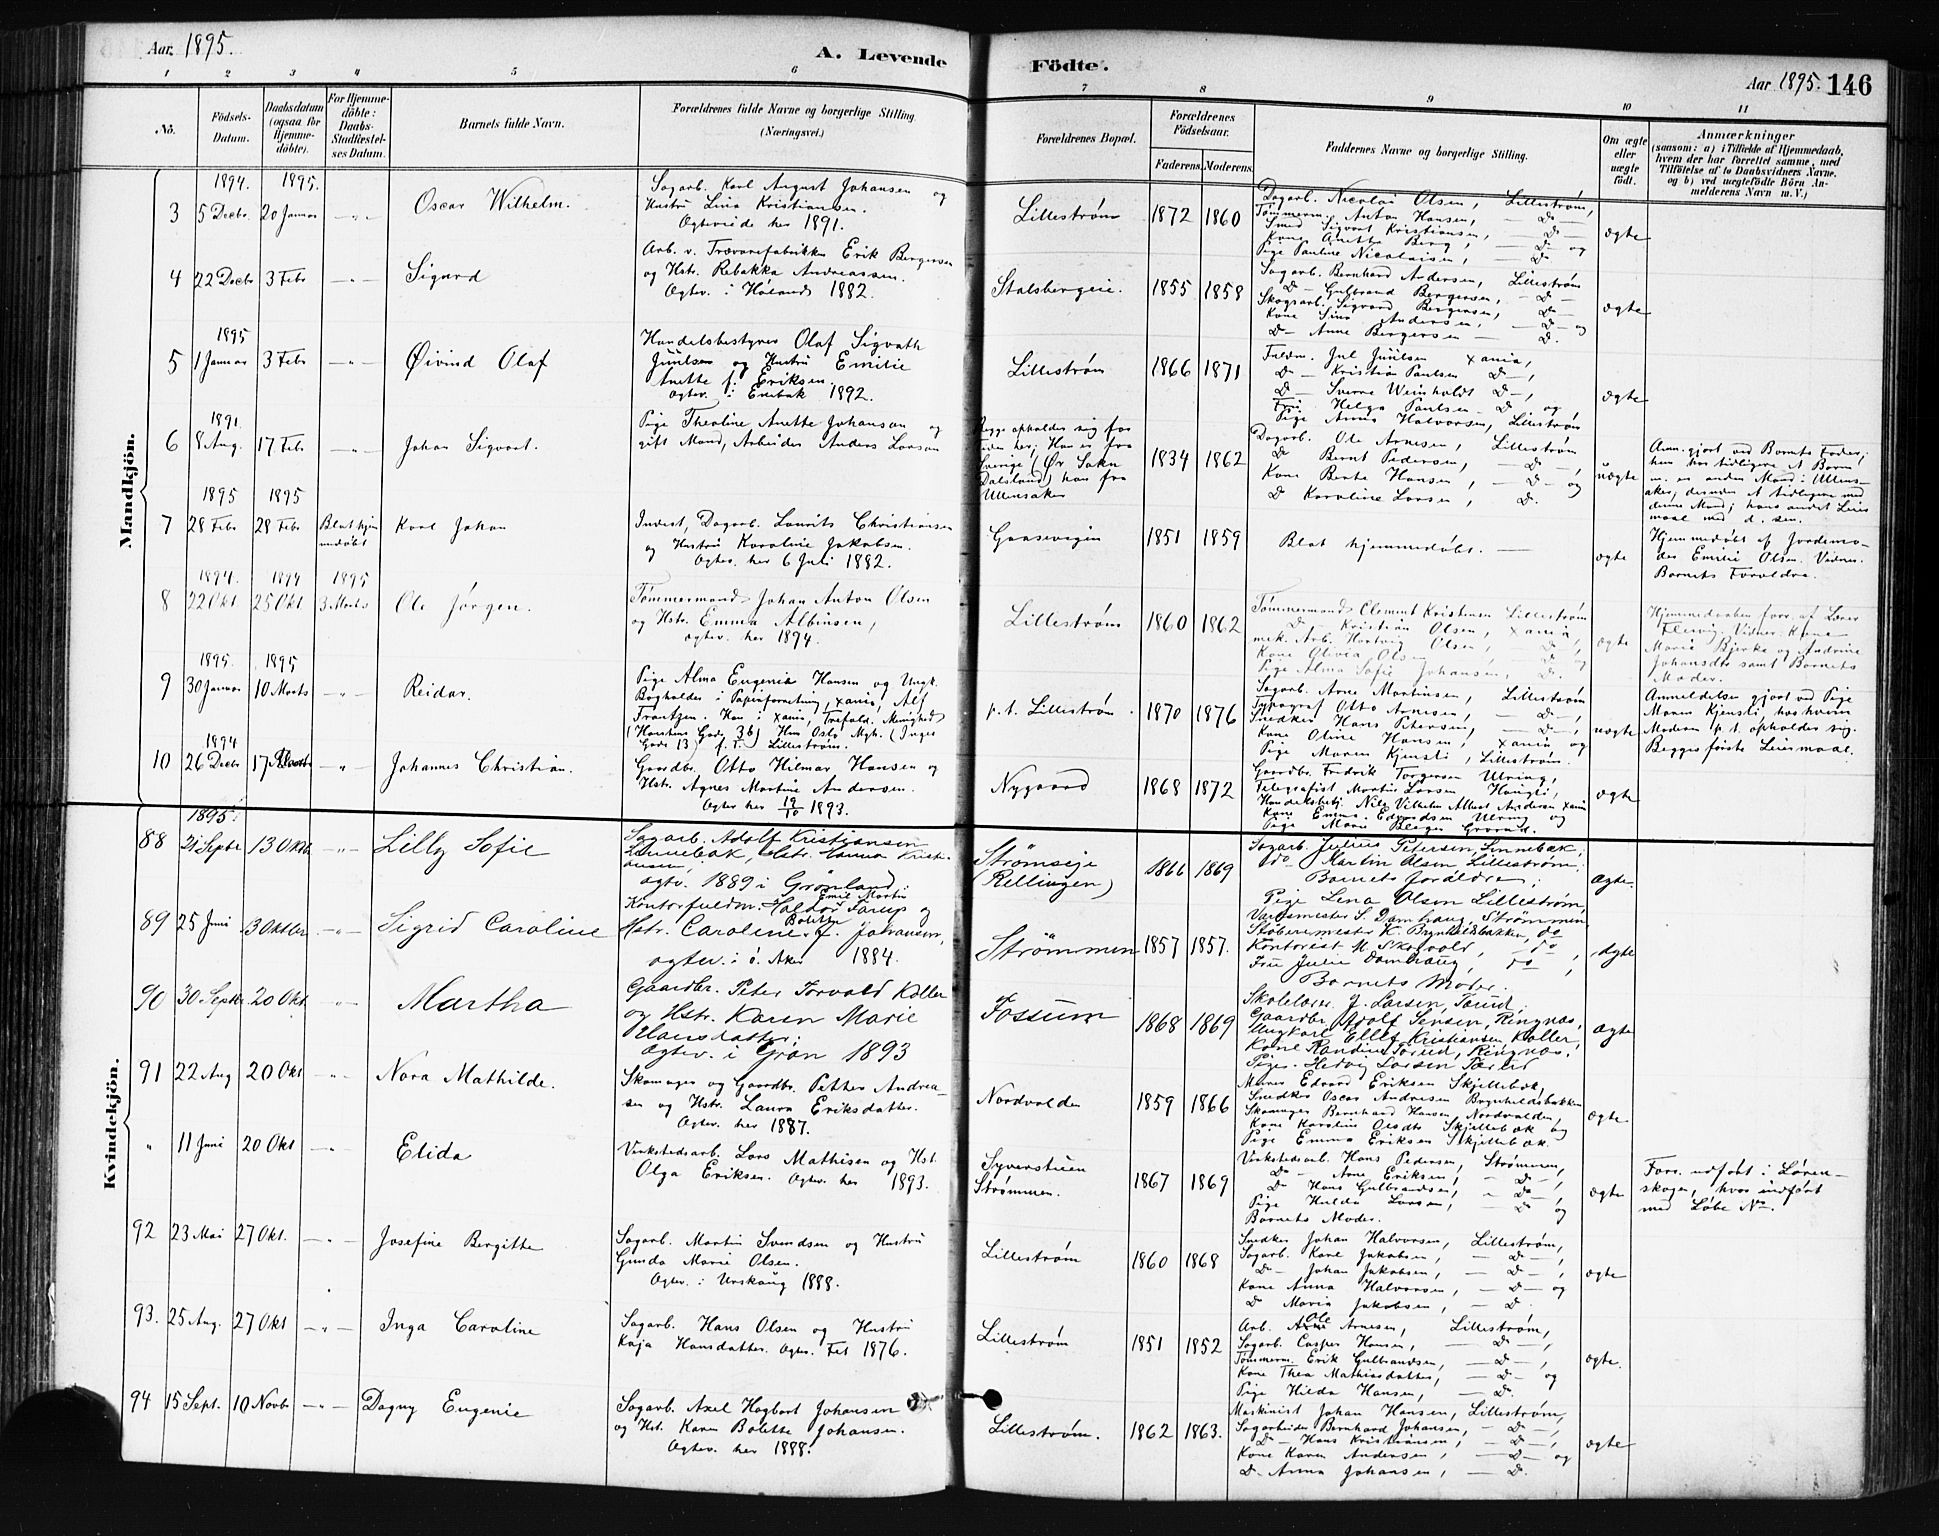 Aar. 1895.
A. Levende Födte.
Aar 1895. 146
1 2 3 4 5 6 7 8 9 10 11
No.
Födsels-Datum.
Daabsdatum (ogsaa for Hjemme-döbte).
For Hjemme-döbte: Daabs-Stadfæstel-ses Datum.
Barnets fulde Navn.
Forældrenes fulde Navne og borgerlige Stilling (Næringsvei.)
Forældrenes Bopæl.
Forældrenes Födselsaar.
Faderens. Moderens.
Faddernes Navne og borgerlige Stilling.
Om ægte eller uægte födt.
Anmærkninger
(saasom: a) i Tilfælde af Hjemmedaab, hvem der har forrettet samme, med Tilföielse af to Daabsvidners Navne. og b) ved uægtefödte Börn An-melderens Navn m. V.)
Mandkjön.
1894. 1895.
3 5 Decbr. 20 Januar Oscar Wilhelm.
Sagarb. Karl August Johansen og
Hustru Lina Kristiansen.
Ægteviede her 1891.
Lillestrøm 1872 1860
Dagarb. Nicolai Olsen, Lillestrøm,
Tømmerm. Anton Hansen, — D —
Smed Sigvart Kristiansen, — D —
Kone Anette Berg, — D — og
Pige Pauline Nicolaisen, — D —
ægte
4 22 Decbr 3 Febr Sigurd
Arb. v. Trævarefabrikken Erik Bergersen
og Hstr. Rebekka Andreassen.
Ægtev. i Høland 1882.
Stalsbergeie. 1855 1858
Sagarb. Bernhard Andersen, Lillestrøm
D — Gulbrand Bergersen, — D —
Skogsarb. Sigvard Bergersen, D —
Kone Lina Andersen, — D — og
D — Anne Bergersen — D.
ægte
1895
5 1 Januar 3 Febr Øivind Olaf
Handelsbestyrer Olaf Sigvath
Juulsen og Hustru Emilie
Anette f. Eriksen.
Ægtev. i Enebak 1892.
Lillestrøm 1866 1871
Fuldm. Jul Juulsen Xania,
D — Kristian Paulsen D —,
D — Sverre Weinholdt D —,
Frk. Helga Paulsen D og
Pige Anna Halvorsen, Lillestrøm
ægte
1891.
6 8 Aug. 17 Febr Johan Sigvart.
Pige Theoline Anette Johanson og
gift Mand, Arbeider Anders Larsson
Begge opholder sig for
Tiden her; Han er fra
Sverige (Ør Sokn
Dalsland) hun fra
Ullensaker
1834 1862
Dagarb. Ole Arnesen, Lillestrøm
D Bernt Pedersen, — D —,
Kone Berte Hansen, — D — og
D Karoline Larsen, D.
uægte
Anm. gjort ved Barnets Fader;
hun har tidligere et Barn
m. en anden Mand i Ullens-
aker, desuden et tidligere med
denne Mand; hans andet Leier
maal med d. sen.
1895 1895
7 28 Febr 28 Febr Blot hjem medøbt Karl Johan
Inderst, Dagarb. Laurits Christiansen
og Hustru Karoline Jakobsen.
Ægtev. her 6 Juli 1882.
Gaasevigen 1851 1859
Blot hjemmedøbt. —
ægte
Hjemmedøbt af Jordemo-
der Emilie Olsen. Vidner:
Barnets Forældre.
1894. 1894 1895
8 22 Okt 25 Okt 3 Marts Ole Jørgen.
Tømmermand Johan Anton Olsen
og Hstr. Emma Albinsen,
ægtev. her 1894.
Lillestrøm 1860 1862
Tømmermand Clement Kristinsen Lillestrøm
D — Kristian Olsen, Xania,
mek. Arb. Hartvig Olsen, — D —,
Kone Olivia Olsen D og
Pige Alma Sofie Johansen, D.
ægte
Hjemmedaaben forr. af Lærer
Vidner: Kone
Marie Bjerke og Andrine
Johansdtr samt Barnets
Moder.
1895. 1895
9 30 Januar 10 Marts Reidar.
Pige Alma Eugenia Hansen og Ungk.
Bogholder i Papirforretning, Xania, Alf
Frantzen. Han i Xania, Trefold. Menighed
(Karstens Gade 36) Hun Oslo Mgh. (Inges
Gade 13) p. t. Lillestrøm.
p. t. Lillestrøm. 1870 1876
Sagarb. Arne Martinsen, Lillestrøm
Typograf Otto Arnesen, — D —,
Snedker Hans Petersen, — D —,
Kone Oline Hansen, Xania og
Pige Maren Kjensli, Lillestrøm.
uægte
Anmeldelsen gjort ved Pige
Maren Kjensli, hos hvem
Moderen p. t. opholder sig.
Begges første Leiermaal.
1894
10 26 Decbr 17 Marts Johannes Christian.
Gaardbr. Otto Hilmar Hansen og
Hstr. Agnes Martine Andersen.
Ægtev her 19/10 1893.
Nygaard 1868 1872
Gaardbr. Fredrik Torgersen Ulring,
Telegrafist Martin Larsen Haugli,
Handelsbetj. Nils Vilhelm Albert Andersen Xania
Kone Emma Edvardsen Ulring og
Pige Marie Berger
ægte
Kvindekjön.
1895.
88 21 Septbr 13 Oktb. Lilly Sofie
Sagarb. Adolf Kristiansen
Sannebæk, Hstr. Hanna Kristi-
ansen
ægtv. 1889 i Grønland.
Strømseje (Rellingen) 1866 1869
Sagarb. Julius Petersen, Sinnebæk,
do Martin Olsen Lillestrøm,
Barnets forældre;
Pige Lena Olsen Lillestrøm
ægte.
89 25 Juni 3 Oktbr. Sigrid Caroline
Kontorfuldm. Haldor Emil Martin Tarup og
Hstr. Caroline Bolette f. Johansen,
ægtev. i Ø. Aker 1884.
Strømmen 1857 1857.
Værksmester S. Damhaug, Strømmen
Støberimester K. Brynhildsbakken, do
Kontorist M. Skovold, — do
Fru Julie Damhaug, do,
Barnets Moder.
ægte
90 30 Septbr 20 Okt. Martha
Gaardbr. Peter Torvald Koller
og Hstr. Karen Marie
Hansdatter;
Ægtev. i Gran 1893
Fossum 1868 1869
Skolelærer J. Larsen, Tærud.
Gaardbr Adolf Jensen, Ringnæs,
Ungkarl Ellef Kristiansen, Koller,
Kone Randine Tærud, Ringnæs,
Pige Hedvig Larsen Tærud
ægte
91 22 Aug 20 Okt Nora Mathilde.
Skomager og Gaardbr. Petter Andrea-
sen og Hstr. Laura Eriksdatter.
Ægtev. her 1887.
Nordvolden 1859 1866
Murer Edvard Eriksen Skjellebæk,
Snedker Oscar Andresen Brynhildsbakken
Skomager Bernhard Hansen, Nordvolden,
Kone Karoline Olsdtr Skjellebæk og
Pige Emma Eriksen Skjellebæk.
ægte
" 11 Juni 20 Okt Elida
Værkstedsarb. Lars Mathisen og Hst.
Olga Eriksen. Ægtev. her 1893.
Syverstuen Strømmen. 1867 1869
Værkstedsarb. Hans Pedersen, Strømmen,
D — Arne Eriksen, — D —,
D — Hans Gulbrandsen, — D —,
Pige Hulda Larsen, — D og
Barnets Moder.
ægte
Forr. udført i Løren-
skogen, hvor indført
med Løbe No.
92 23 Mai 27 Okt. Josefine Bergitte
Sagarb. Martin Svendsen og Hustru
Gunda Marie Olsen.
Ægtev. i Urskoug 1888.
Lillestrøm 1860 1868
Snedker Johan Halvorsen, Lillestrøm,
Sagarb. Kare Jakobsen, — D —,
D — Johan Jakobsen, — D —,
Kone Anna Halvorsen, — D — og
D Maria Jakobsen, — D.
ægte
93. 25 Aug. 27 Okt Inga Caroline
Sagarb. Hans Olsen og Hustru
Kaja Hansdatter. Ægtev. Fet 1876.
Lillestrøm 1851 1852
Arb. Ole Arnesen, Lillestrøm,
Sagarb. Casper Hansen, — D —,
Tømmerm. Erik Gulbrandsen, — D —,
Kone Thea Mathiasdatter, — D — og
Pige Hilda Hansen, — D.
ægte.
94 15 Sept. 10 Novbr Dagny Eugenie
Sagarb. Axel Hagbart Johansen
og Hst. Karen Bolette Johansen.
Ægtev. her 1888.
Lillestrøm. 1862 1863.
Maskinist Johan Hansen, Lillestrøm,
Sagarbeider Bernhard Johansen, — D —,
D — Hans Kristiansen, — D —,
Kone Karen Andersen, — D — og
D. Anna Johansen, — D.
ægte